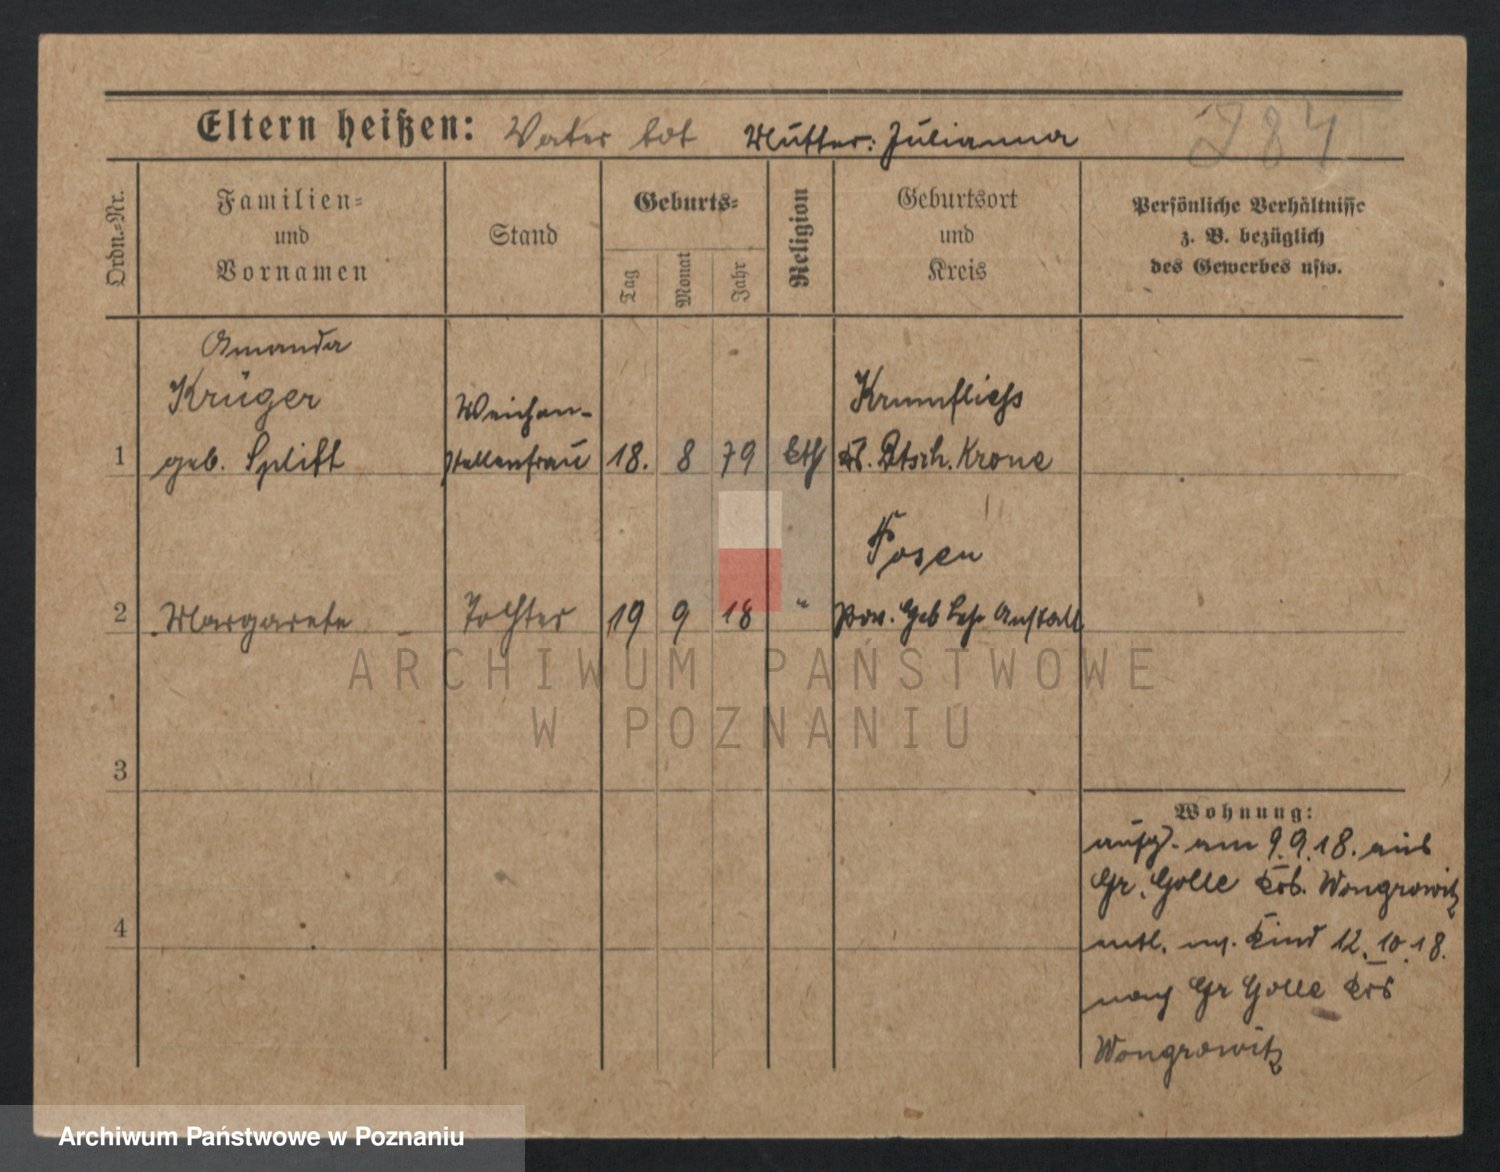 Eltern heißen: Vater tot Mutter: Julianna
284
Ordn.-Nr.
Familien- und Vornamen
Stand
Geburts-
Tag
Monat
Jahr
Religion
Geburtsort und Kreis
Persönliche Verhältnisse
z. B. bezüglich
des Gewerbes usw.
Amanda
Krüger
geb. Splitt
1
Weichen-
stellersfrau
18. 8 79
kth
Krumfliess
Krs. Dtsch. Krone
2
Margarete
Tochter
19 9 18
"
Posen
Prov. Heb Lehr Anstalt
3
4
Wohnung:
aufg. am 9.9.18. aus
Gr. Golle Krs. Wongrowitz
entl. m. Kind 12.10.18.
nach Gr Golle Krs
Wongrowitz
ARCHIWUM PAŃSTWOWE
W POZNANIU
Archiwum Państwowe w Poznaniu